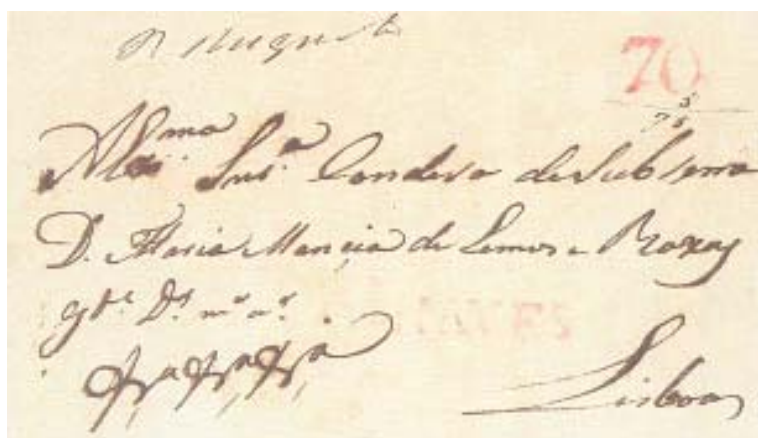 R Augusta
70
5
75
Snr.ª Condeça de Subserra
D. Maria Mancia de Lemos e Roxas
gde. Ds. ms. as.
CHAVES
Lisboa